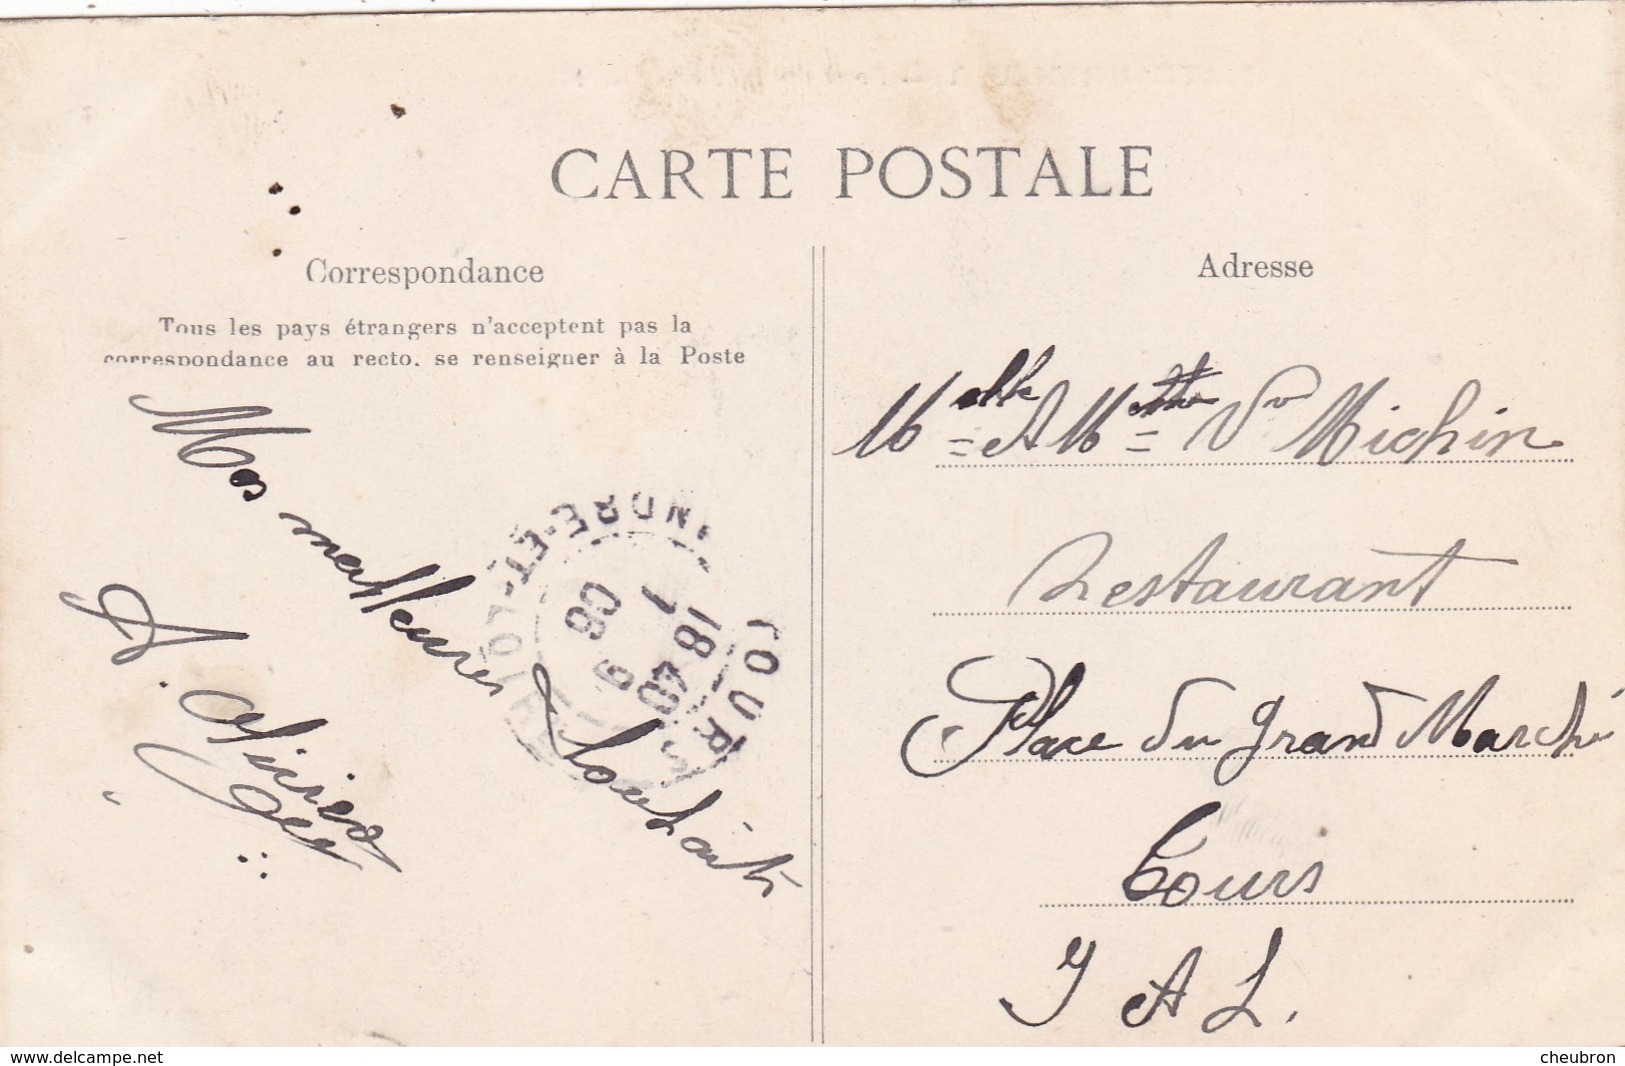 CARTE POSTALE
Correspondance
Tous les pays étrangers n'acceptent pas la
correspondance au recto. se renseigner à la Poste
Mes meilleures Souhaits
A.
TOURS
INDRE-ET-LOIRE
18 40
6
06
Adresse
Melle A Mette Vve Michin
Restaurant
Place du Grand Marché
Tours
I A L.
www.delcampe.net
cheubron